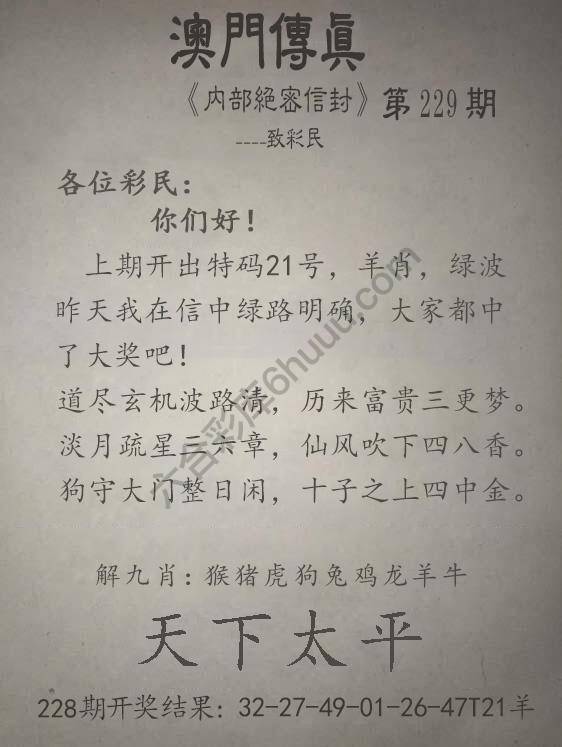 澳門傳眞
《内部絕密信封》第229期
----致彩民
各位彩民：
你们好！
上期开出特码21号，羊肖，绿波
昨天我在信中绿路明确，大家都中
了大奖吧！
道尽玄机波路清，历来富贵三更梦。
淡月疏星三六章，仙风吹下四八香。
狗守大门整日闲，十子之上四中金。
六合彩库6huuu.com
解九肖：猴猪虎狗兔鸡龙羊牛
天下太平
228期开奖结果：32-27-49-01-26-47T21羊